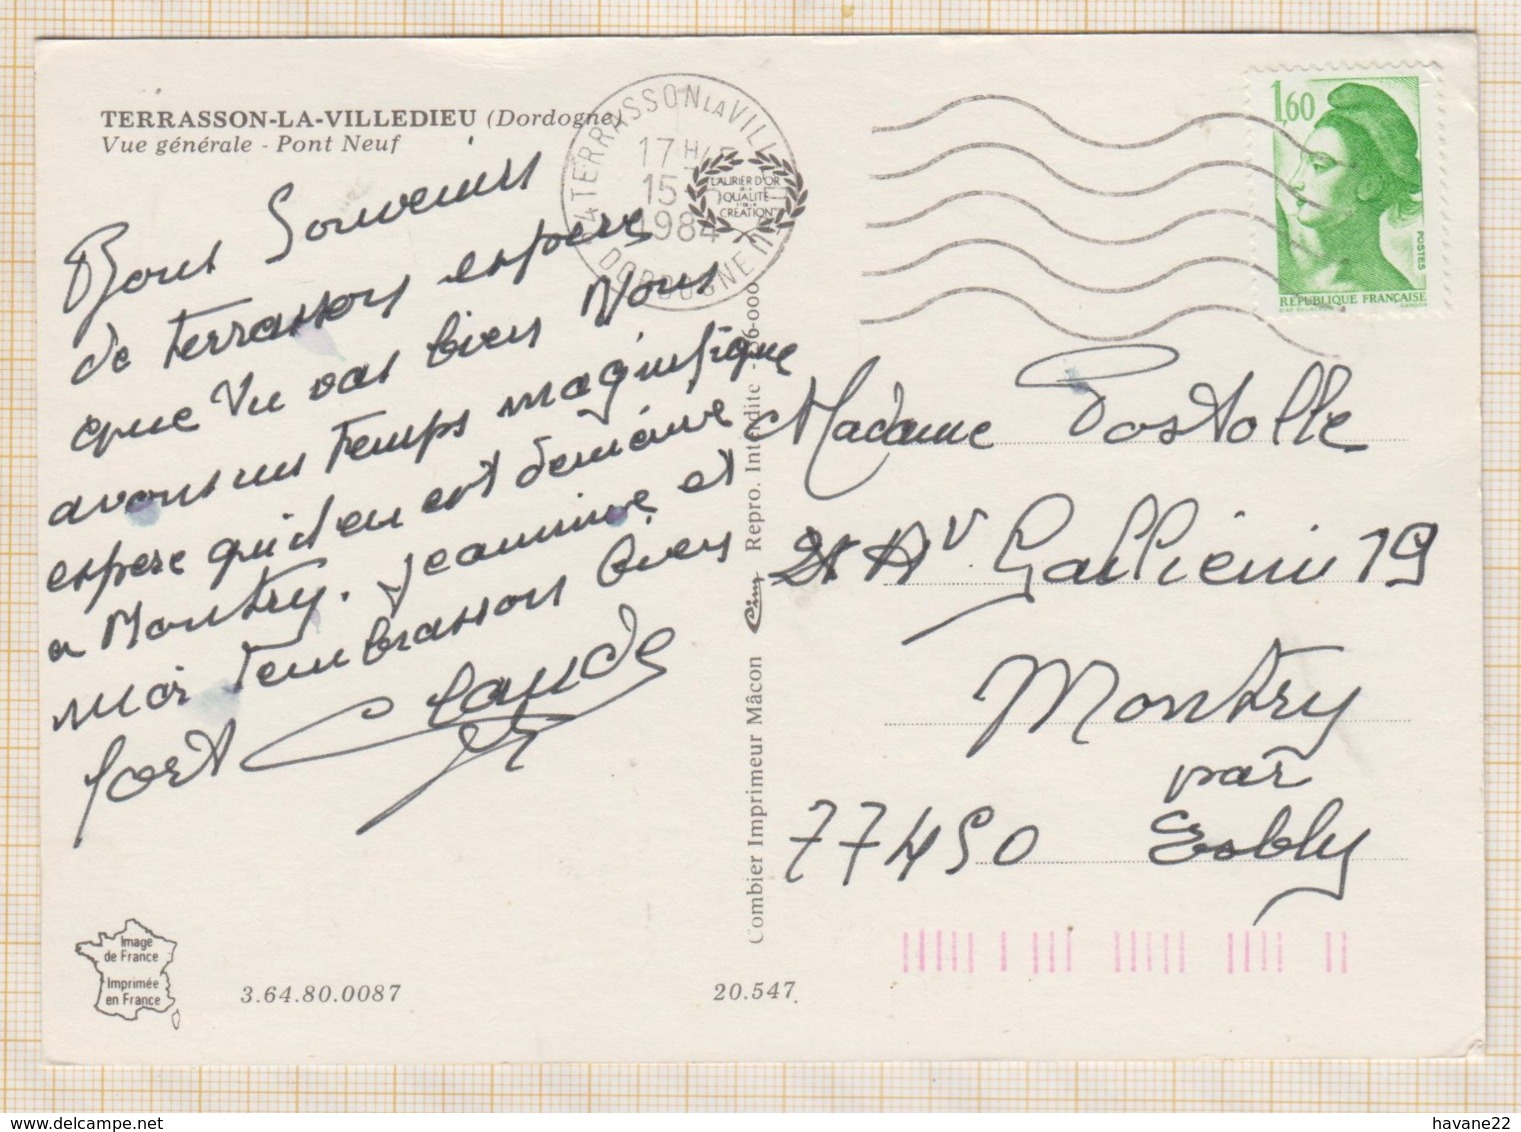 TERRASSON-LA-VILLEDIEU (Dordogne)
Vue générale - Pont Neuf
Bons Souvenirs
de Terrasson espere
que tu vas bien Nous
avons un temps magnifique
espere qu'il en est de même
a Montry. Jeannine et
moi t'embrassons bien
fort Claude
TERRASSON LA VILLEDIEU
17H45
15
1984
DORDOGNE
LAURIER D'OR
DE LA
QUALITÉ
CRÉATION
1,60
POSTES
REPUBLIQUE FRANÇAISE
Madame Postolle
Av Gallieni 19
Montry
par
77450 Esbly
Combier Imprimeur Mâcon Cim Repro. Interdite
Image
de France
Imprimée
en France
3.64.80.0087
20.547
havane22